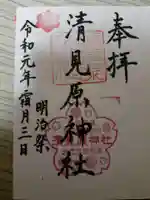 奉拝
清見原神社
明治祭
令和元年霜月三日